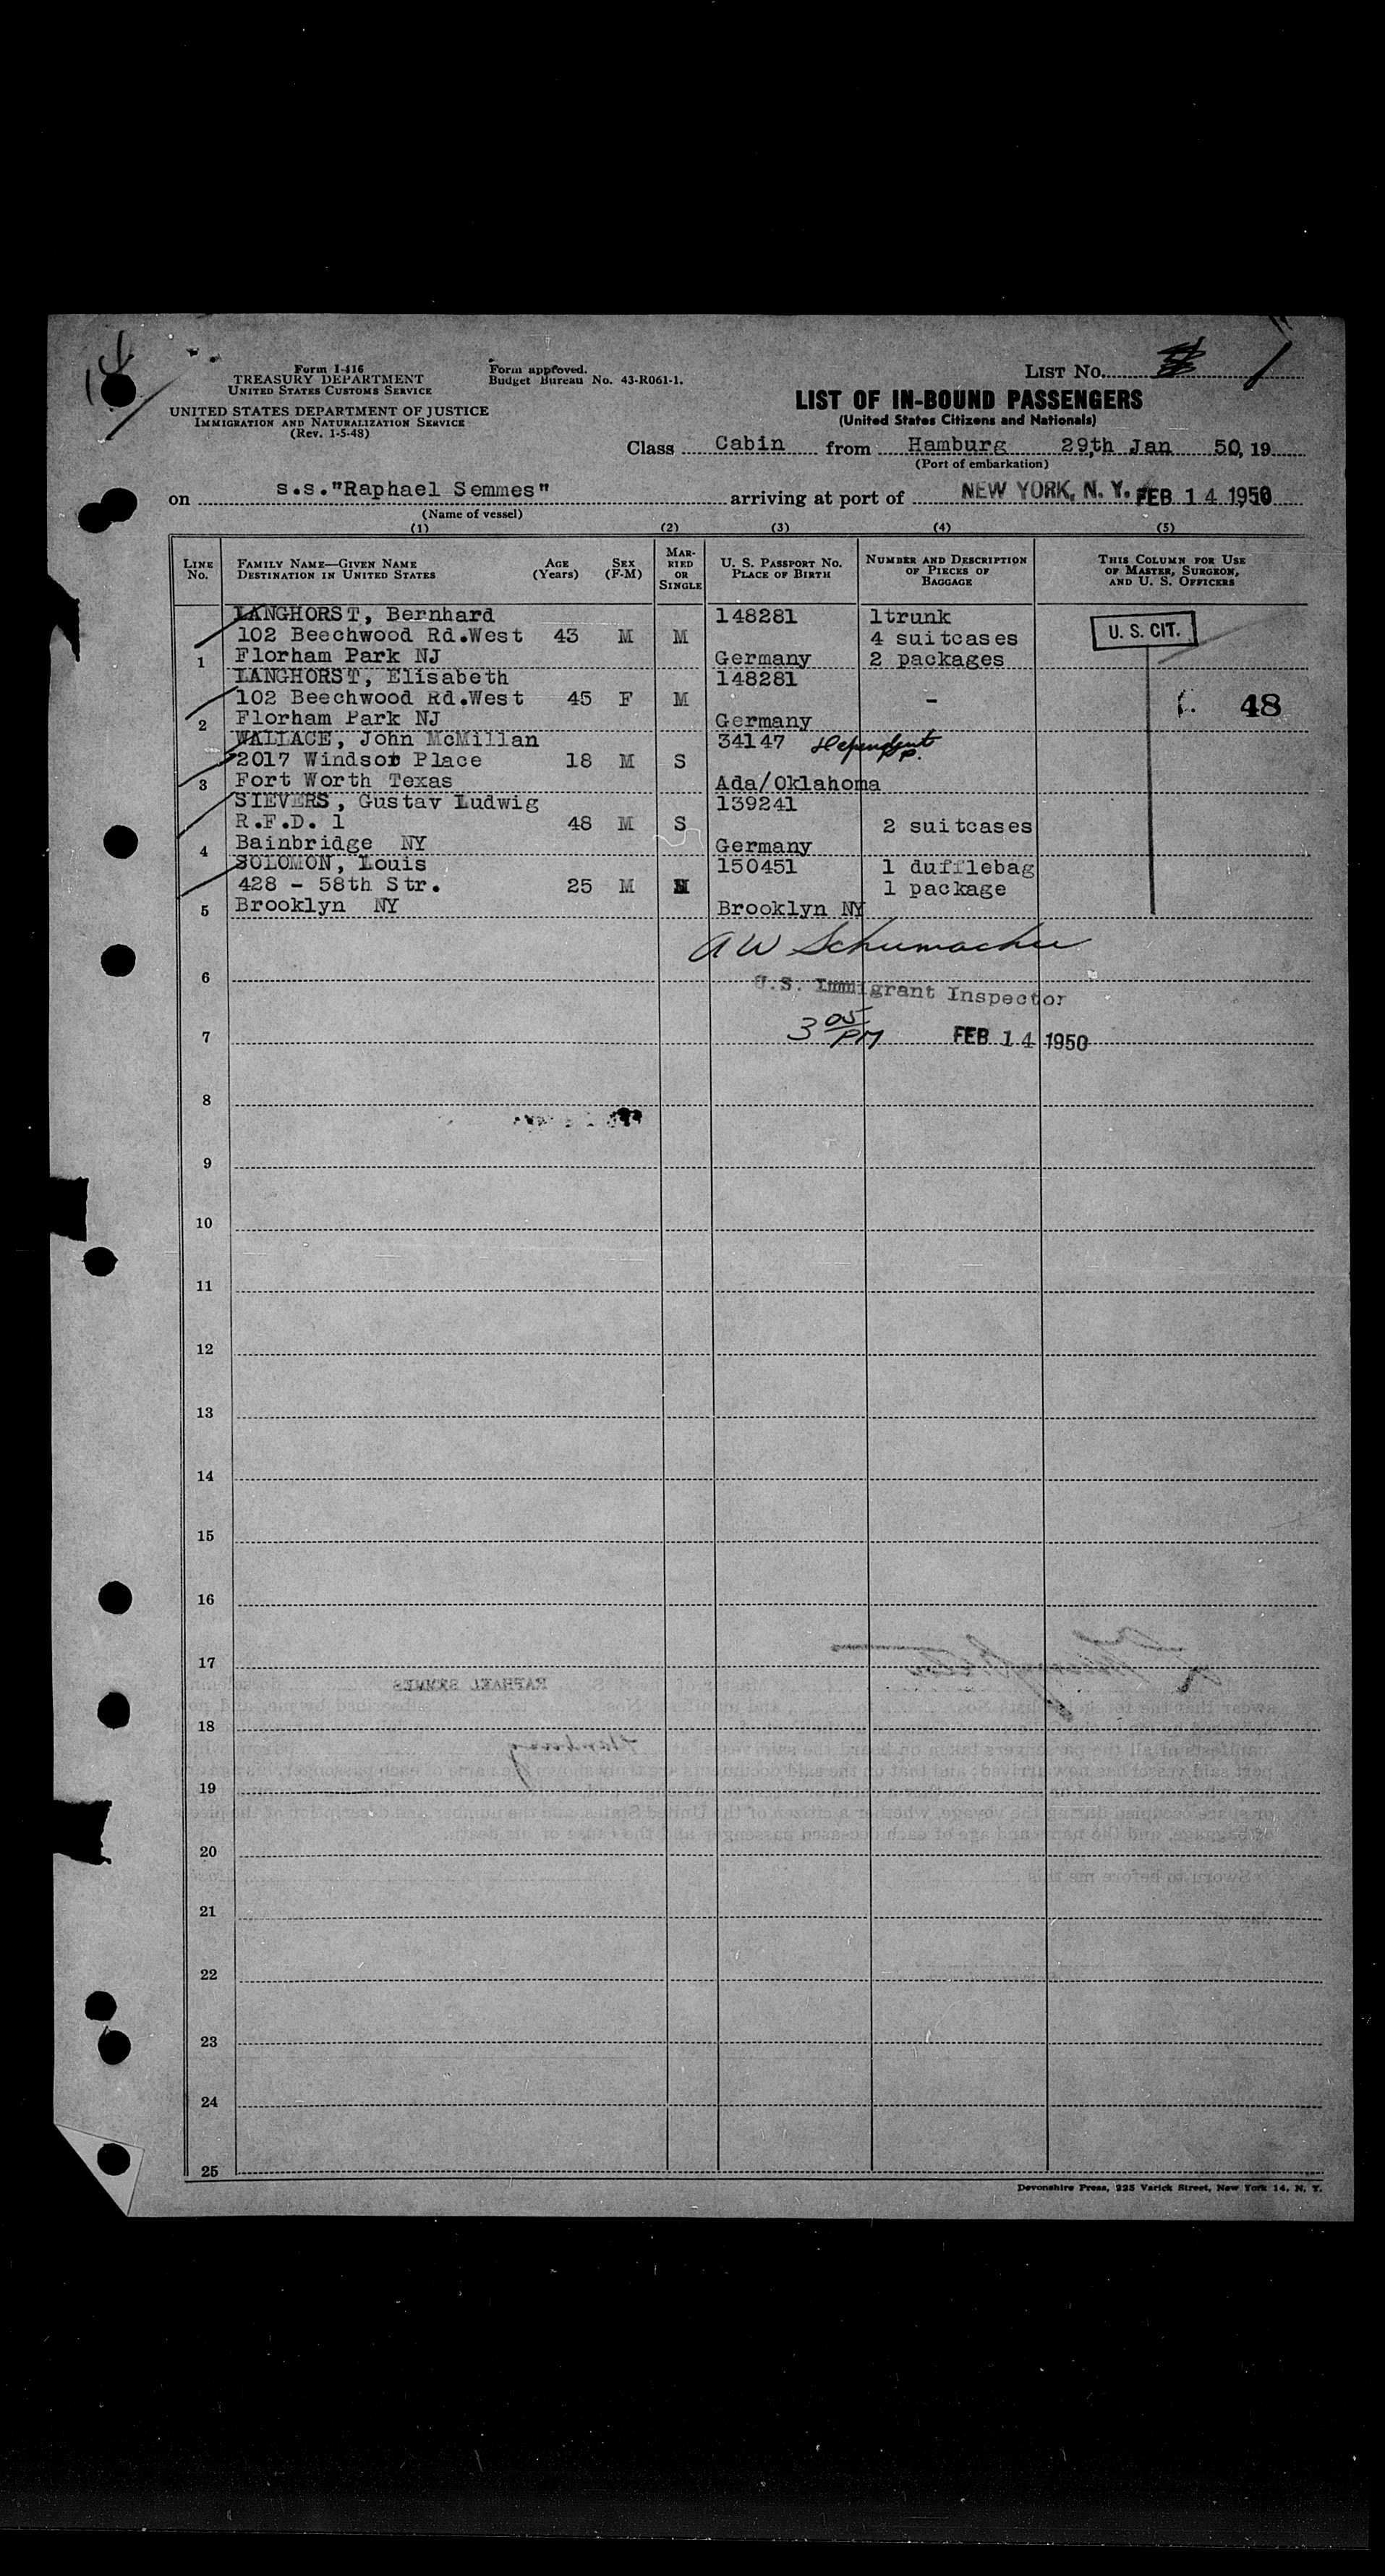 Form I-416
TREASURY DEPARTMENT
UNITED STATES CUSTOMS SERVICE
UNITED STATES DEPARTMENT OF JUSTICE
IMMIGRATION AND NATURALIZATION SERVICE
(Rev. 1-5-48)
Form approved.
Budget Bureau No. 43-R061-1.
LIST NO. 1
LIST OF IN-BOUND PASSENGERS
(United States Citizens and Nationals)
Class Cabin from Hamburg 29,th Jan 50, 19
(Port of embarkation)
on s.s."Raphael Semmes" arriving at port of NEW YORK, N. Y. FEB 14 1950
(Name of vessel)
(1) (2) (3) (4) (5)
LINE NO. FAMILY NAME—GIVEN NAME DESTINATION IN UNITED STATES AGE (YEARS) SEX (F-M) MARRIED OR SINGLE U. S. PASSPORT NO. PLACE OF BIRTH NUMBER AND DESCRIPTION OF PIECES OF BAGGAGE THIS COLUMN FOR USE OF MASTER, SURGEON, AND U. S. OFFICERS
LANGHORST, Bernhard 148281 1trunk
102 Beechwood Rd.West 43 M M 4 suitcases U. S. CIT.
1 Florham Park NJ Germany 2 packages
LANGHORST, Elisabeth 148281
102 Beechwood Rd.West 45 F M - 48
2 Florham Park NJ Germany
WALLACE, John McMillan 34147 Dependent PP.
2017 Windsor Place 18 M S
3 Fort Worth Texas Ada/Oklahoma
SIEVERS, Gustav Ludwig 139241
R.F.D. 1 48 M S 2 suitcases
4 Bainbridge NY Germany
SOLOMON, Louis 150451 1 dufflebag
428 - 58th Str. 25 M 1 package
5 Brooklyn NY Brooklyn NY
A W Schumacher
6
U.S. Immigrant Inspector
7 3 05 PM FEB 14 1950
8
9
10
11
12
13
14
15
16
17
RAPHAEL SEMMES
18
Hamburg
19
20
Sworn to before me this
21
22
23
24
25
Devonshire Press, 225 Varick Street, New York 14, N. Y.